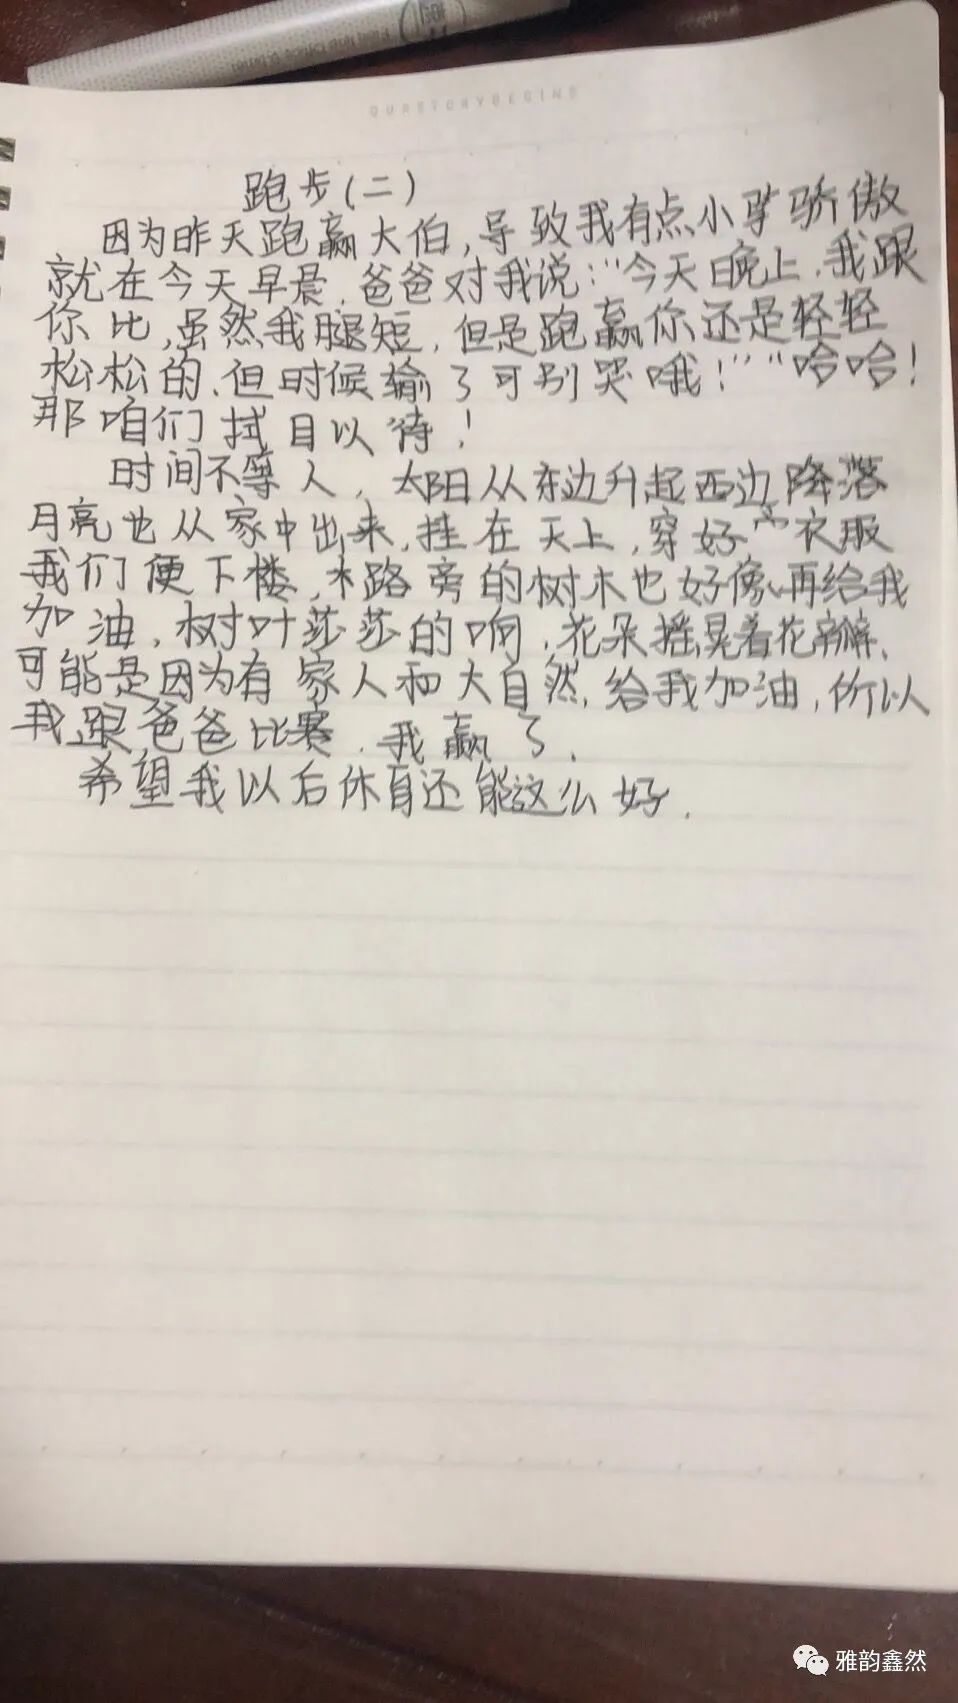 OURSTORYBEGINS
跑步(二)
因为昨天跑赢大伯,导致我有点小骄傲
就在今天早晨,爸爸对我说:“今天晚上,我跟
你比,虽然我腿短,但是跑赢你还是轻轻
松松的,但时候输了可别哭哦!”“哈哈!
那咱们拭目以待!
时间不等人,太阳从东边升起西边降落
月亮也从家中出来,挂在天上,穿好衣服
我们便下楼,路旁的树木也好像再给我
加油,树叶莎莎的响,花朵摇晃着花瓣,
可能是因为有家人和大自然,给我加油,所以
我跟爸爸比赛,我赢了.
希望我以后休育还能这么好.
雅韵鑫然